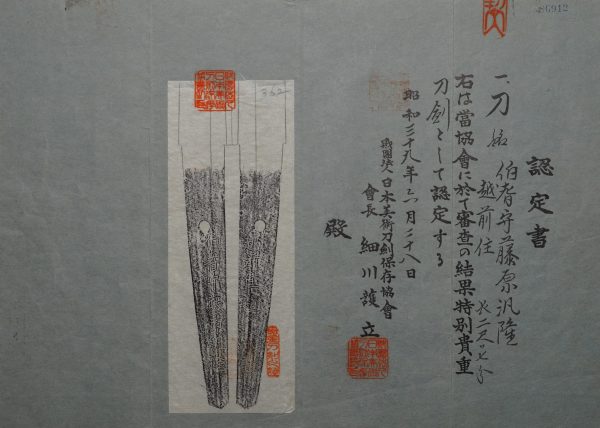 認定書
一、刀 銘 伯耆守藤原汎隆
越前住
長二尺
右は當協會に於て審査の結果特別貴重
刀劍として認定する
昭和三十九年六月二十八日
財團法人日本美術刀劍保存協會
會長 細川護立
殿
362